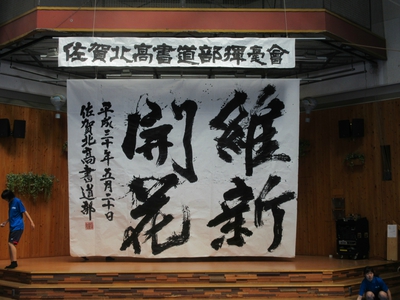 佐賀北高書道部揮毫會
維新
開花
平成三十年五月二十日
佐賀北高書道部